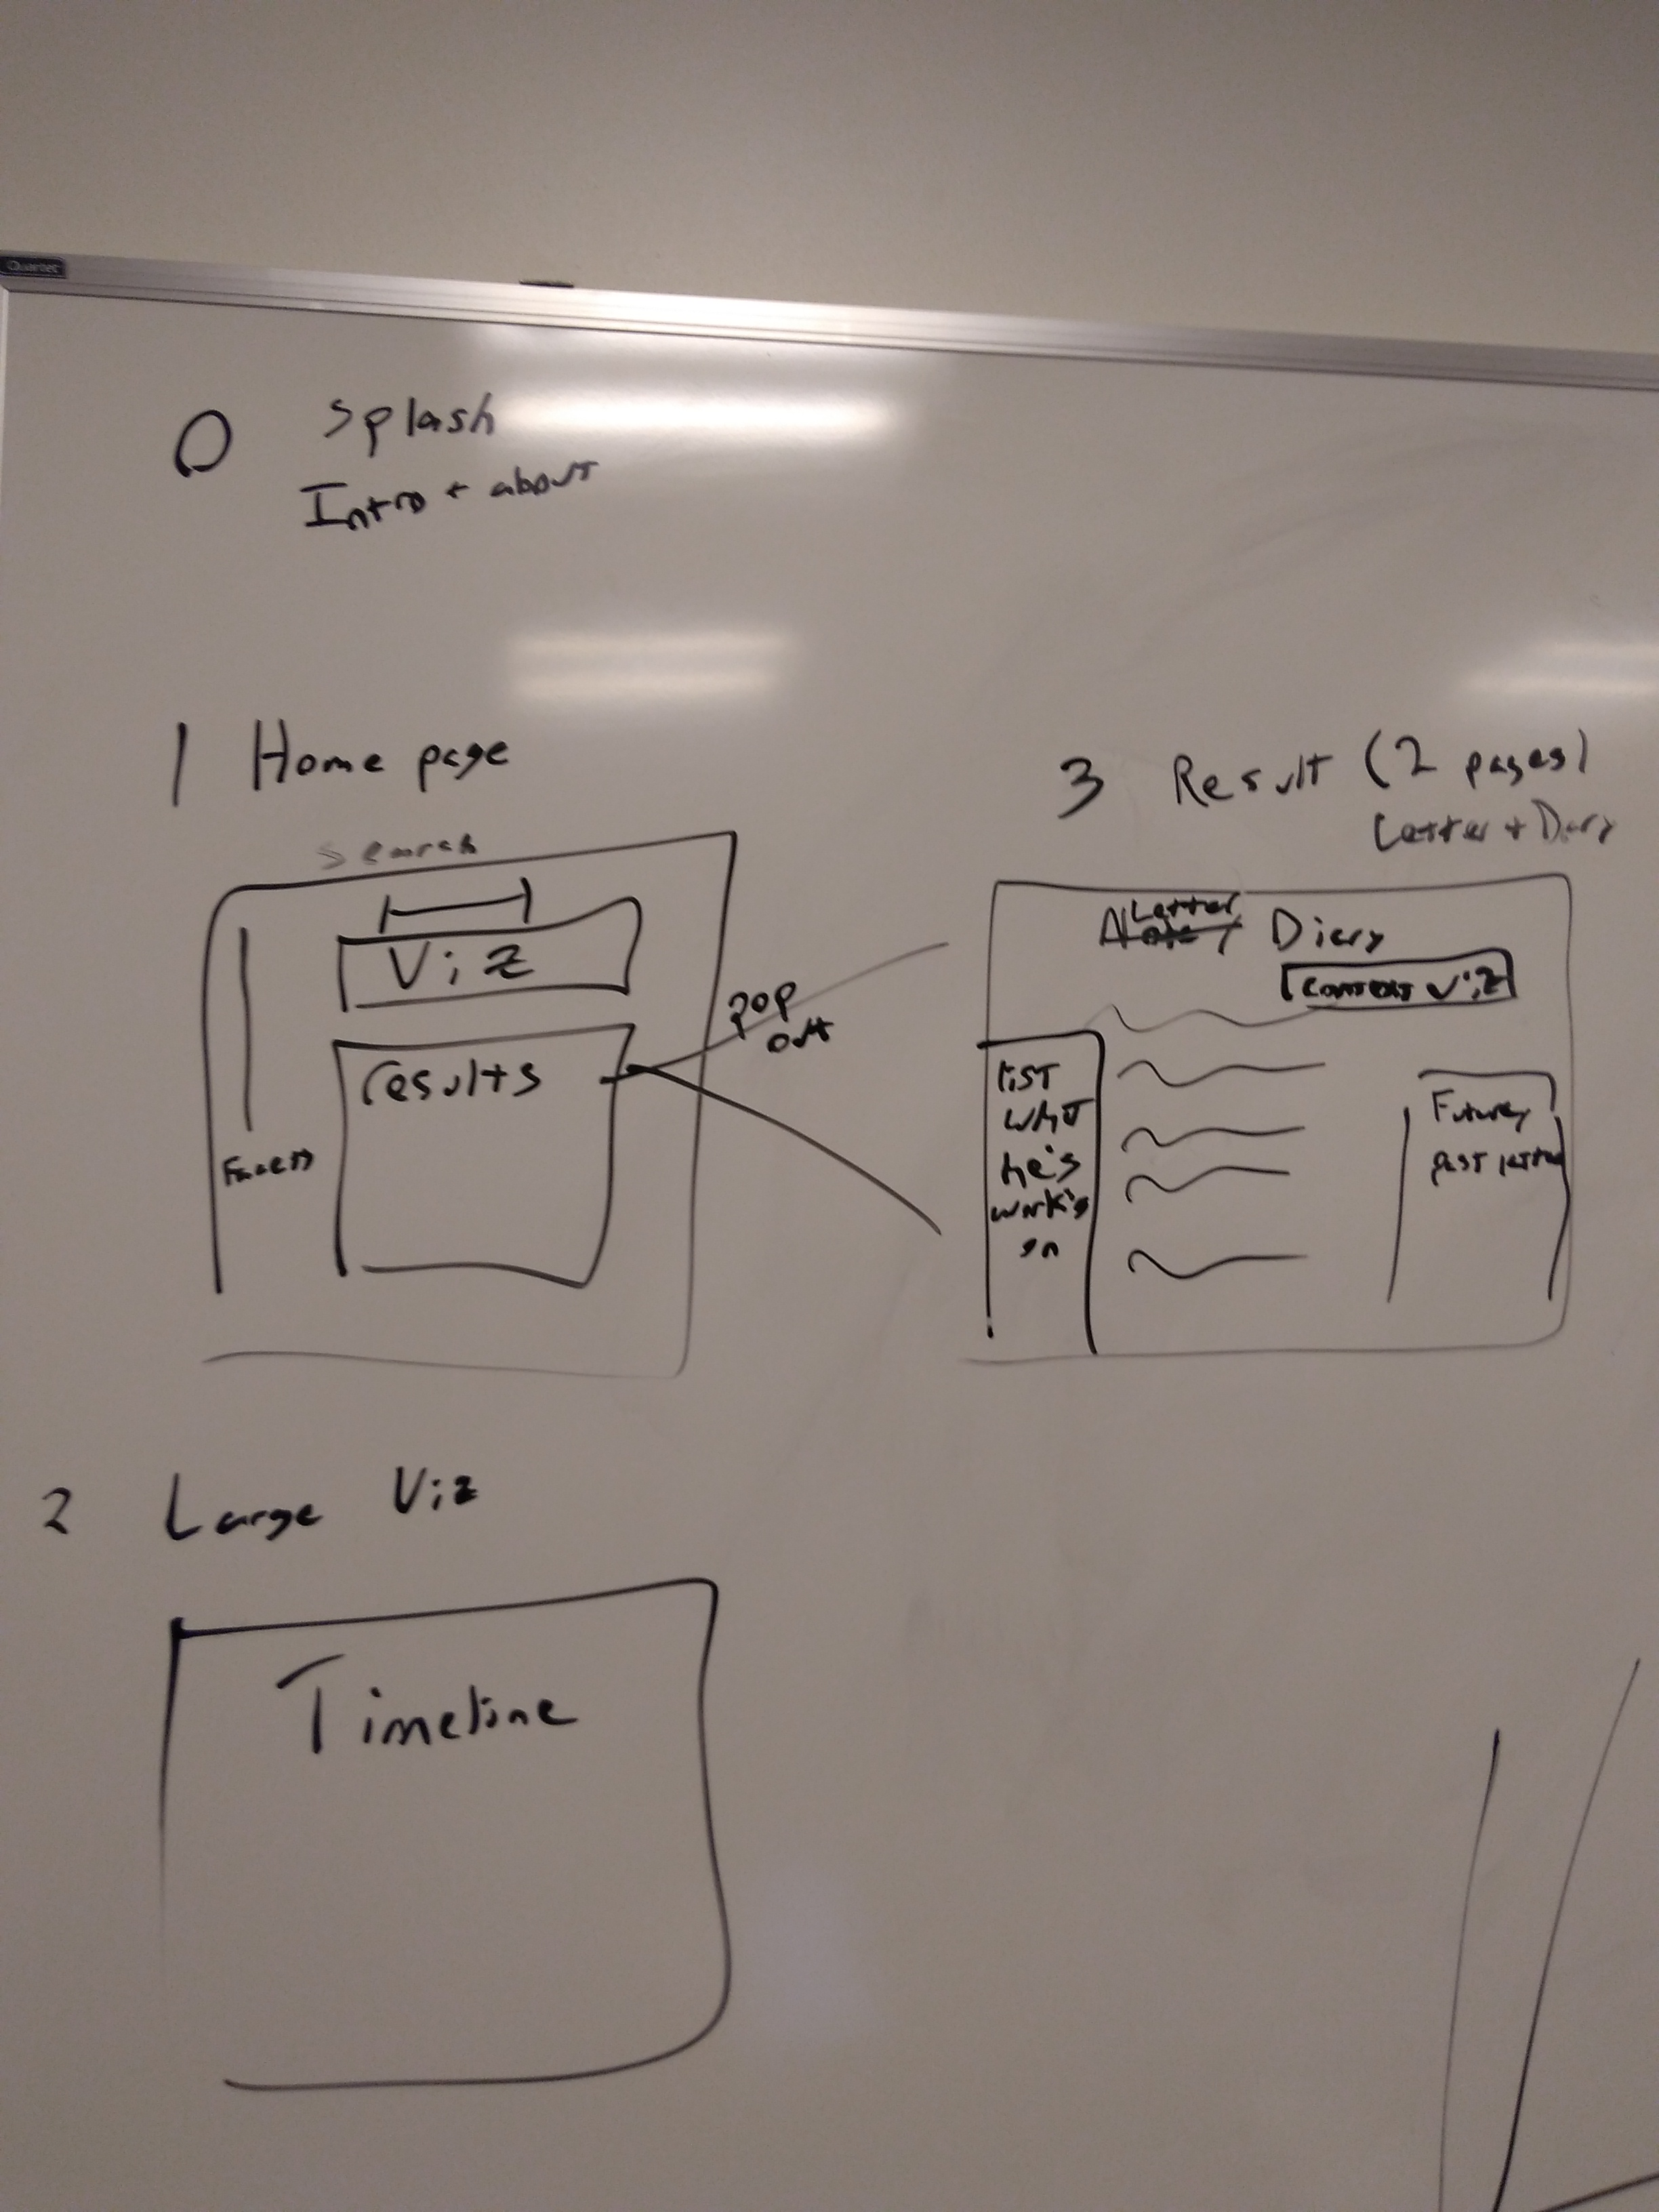 Quartet
0 Splash
Intro + about
1 Home page
Search
Viz
results
Facets
pop
out
3 Result (2 pages)
Letter + Diary
Letter
Note / Diary
context viz
list
what
he's
work's
on
Future,
past letter
2 Large Viz
Timeline